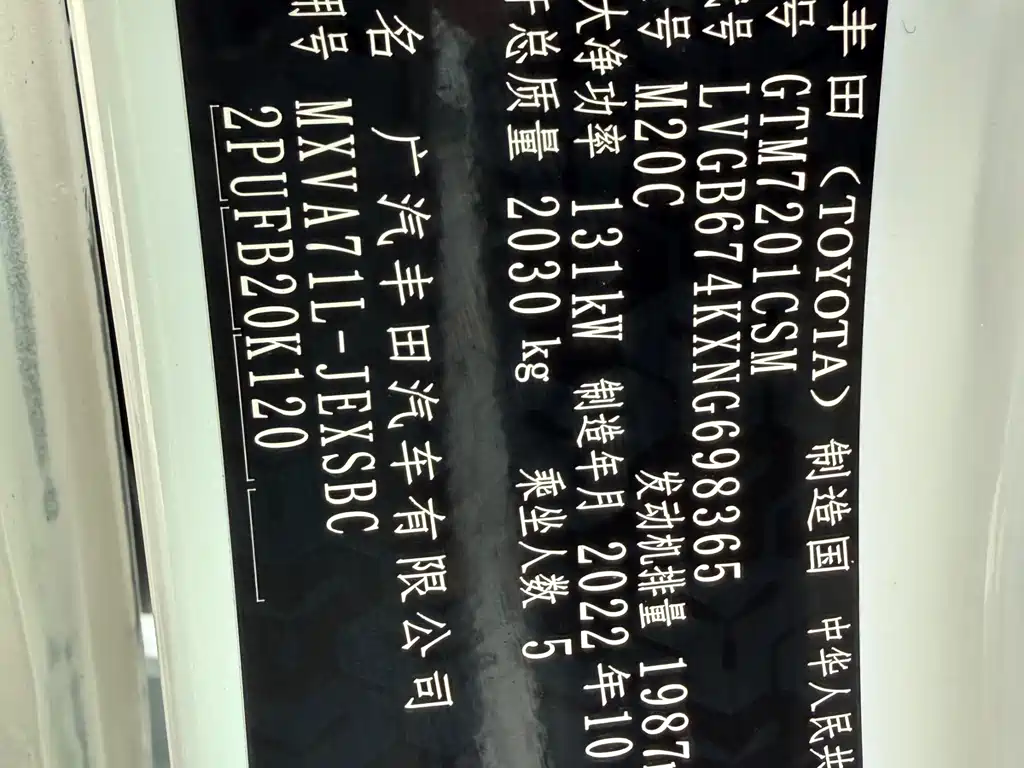 丰田 (TOYOTA) 制造国 中华人民共
号 GTM7201CSM
号 LVGB674KXNG698365
号 M20C 发动机排量 1987
大净功率 131kW 制造年月 2022年10
总质量 2030 kg 乘坐人数 5
名 广汽丰田汽车有限公司
号 MXVA71L-JEXSBC
2PUFB20K120